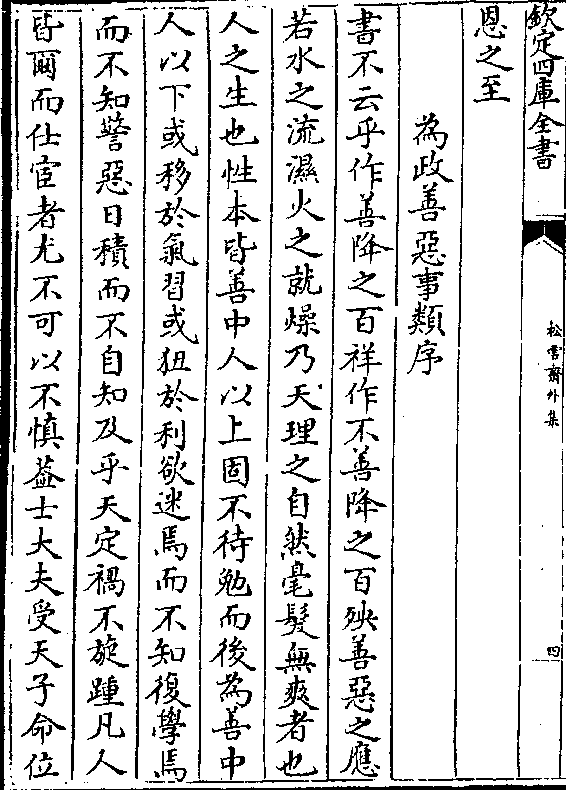 欽定四庫全書
松雪齋外集
四
恩之至
為政善惡事類序
書不云乎作善降之百祥作不善降之百殃善惡之應
若水之流濕火之就燥乃天理之自然毫髮無爽者也
人之生也性本皆善中人以上固不待勉而後為善中
人以下或移於氣習或狃於利欲迷焉而不知復學焉
而不知警惡日積而不自知及乎天定禍不旋踵凡人
皆爾而仕宦者尤不可以不慎葢士大夫受天子命位